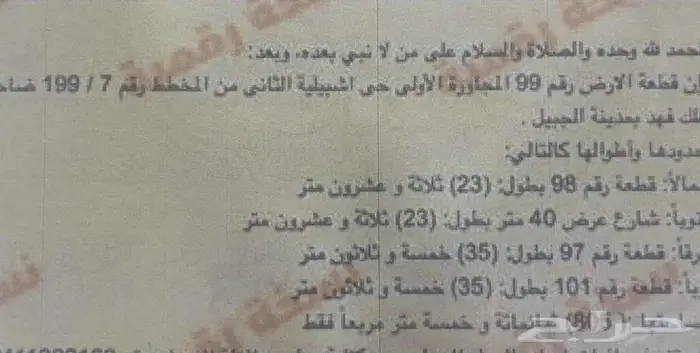 الحمد لله وحده والصلاة والسلام على من لا نبي بعده، وبعد:
إن قطعة الارض رقم 99 المجاورة الأولى حي اشبيلية الثاني من المخطط رقم 7 / 199 ضاحية
الملك فهد بمدينة الجبيل .
حدودها وأطوالها كالتالي:
شمالاً: قطعة رقم 98 بطول: (23) ثلاثة و عشرون متر
جنوباً: شارع عرض 40 متر بطول: (23) ثلاثة و عشرون متر
شرقاً: قطعة رقم 97 بطول: (35) خمسة و ثلاثون متر
غرباً: قطعة رقم 101 بطول: (35) خمسة و ثلاثون متر
ثمانمائة و خمسة متر مربعاً فقط
نسخة رقمية
حراج